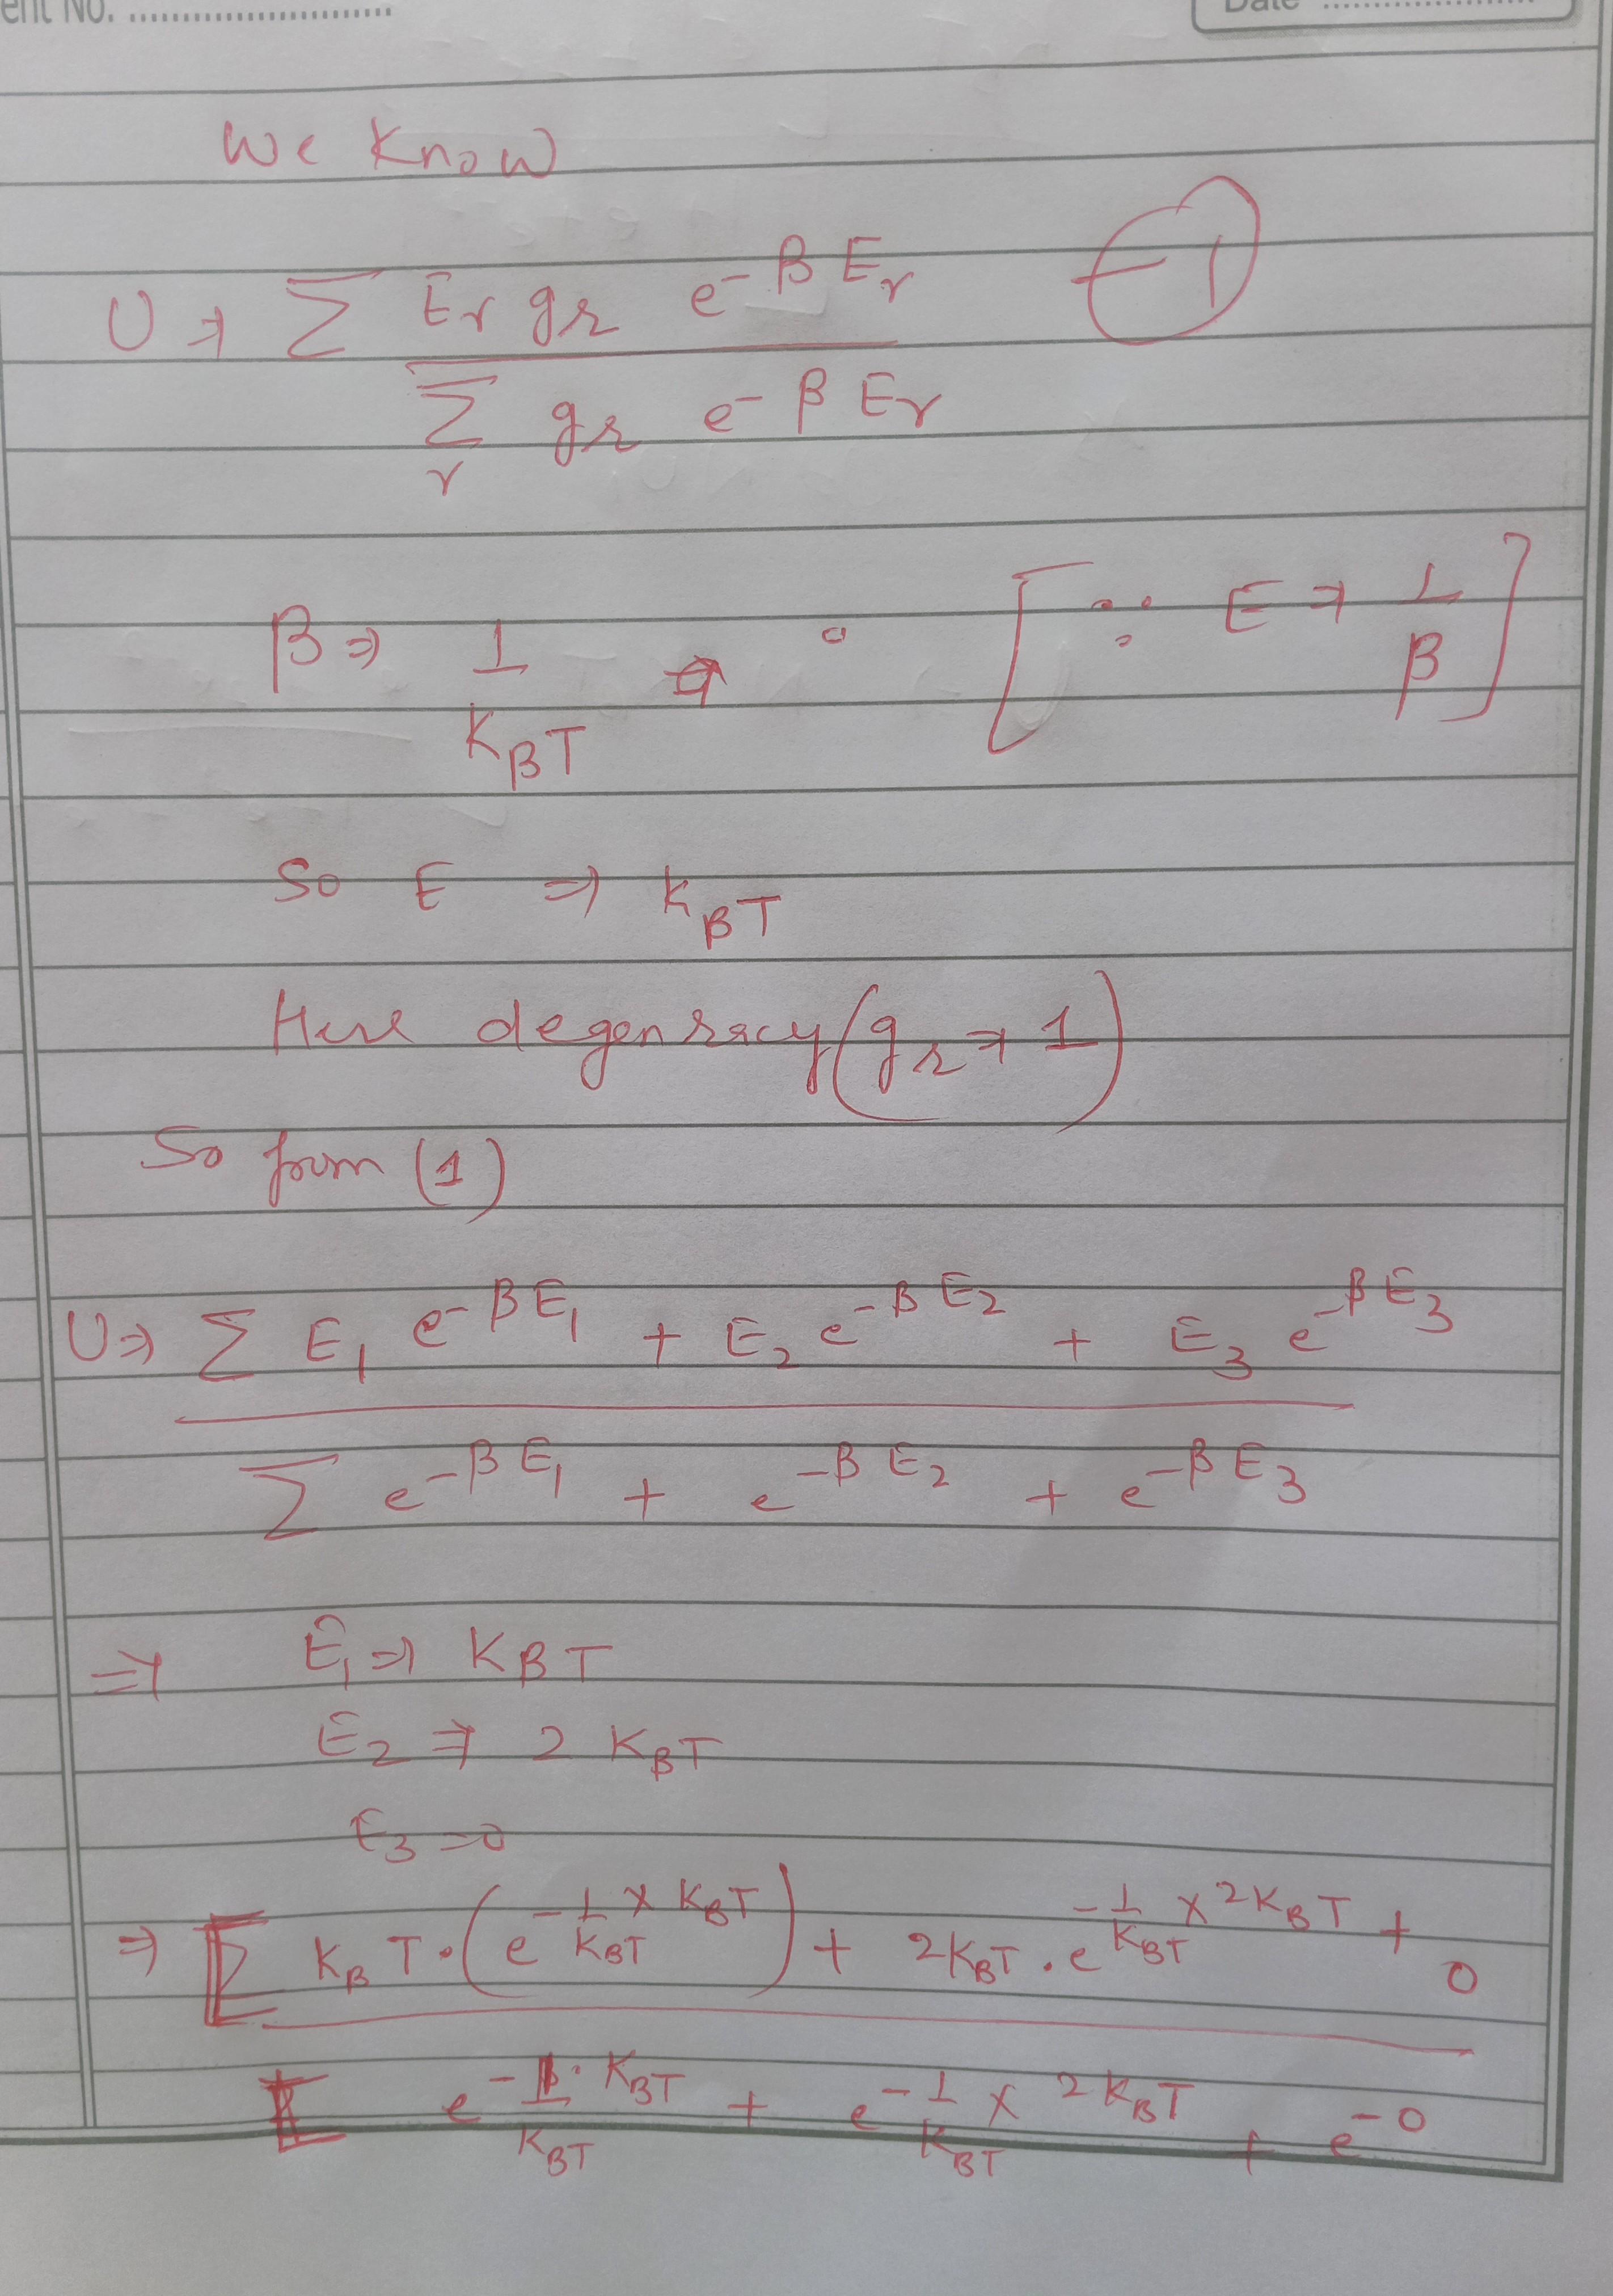 ent No. ........................
Date ........................
We Know
U ⇒ Σ Er gr e^-βEr —(1)
Σr gr e^-βEr
β ⇒ 1/KBT [∵ E ⇒ 1/β]
So E ⇒ KBT
Here degenracy (gr ⇒ 1)
So from (1)
U ⇒ Σ E1 e^-βE1 + E2 e^-βE2 + E3 e^-βE3
Σ e^-βE1 + e^-βE2 + e^-βE3
⇒ E1 ⇒ KBT
E2 ⇒ 2 KBT
E3 = 0
⇒ KBT · (e^-1/KBT × KBT) + 2KBT · e^-1/KBT × 2KBT + 0
e^-1/KBT · KBT + e^-1/KBT × 2KBT + e^-0